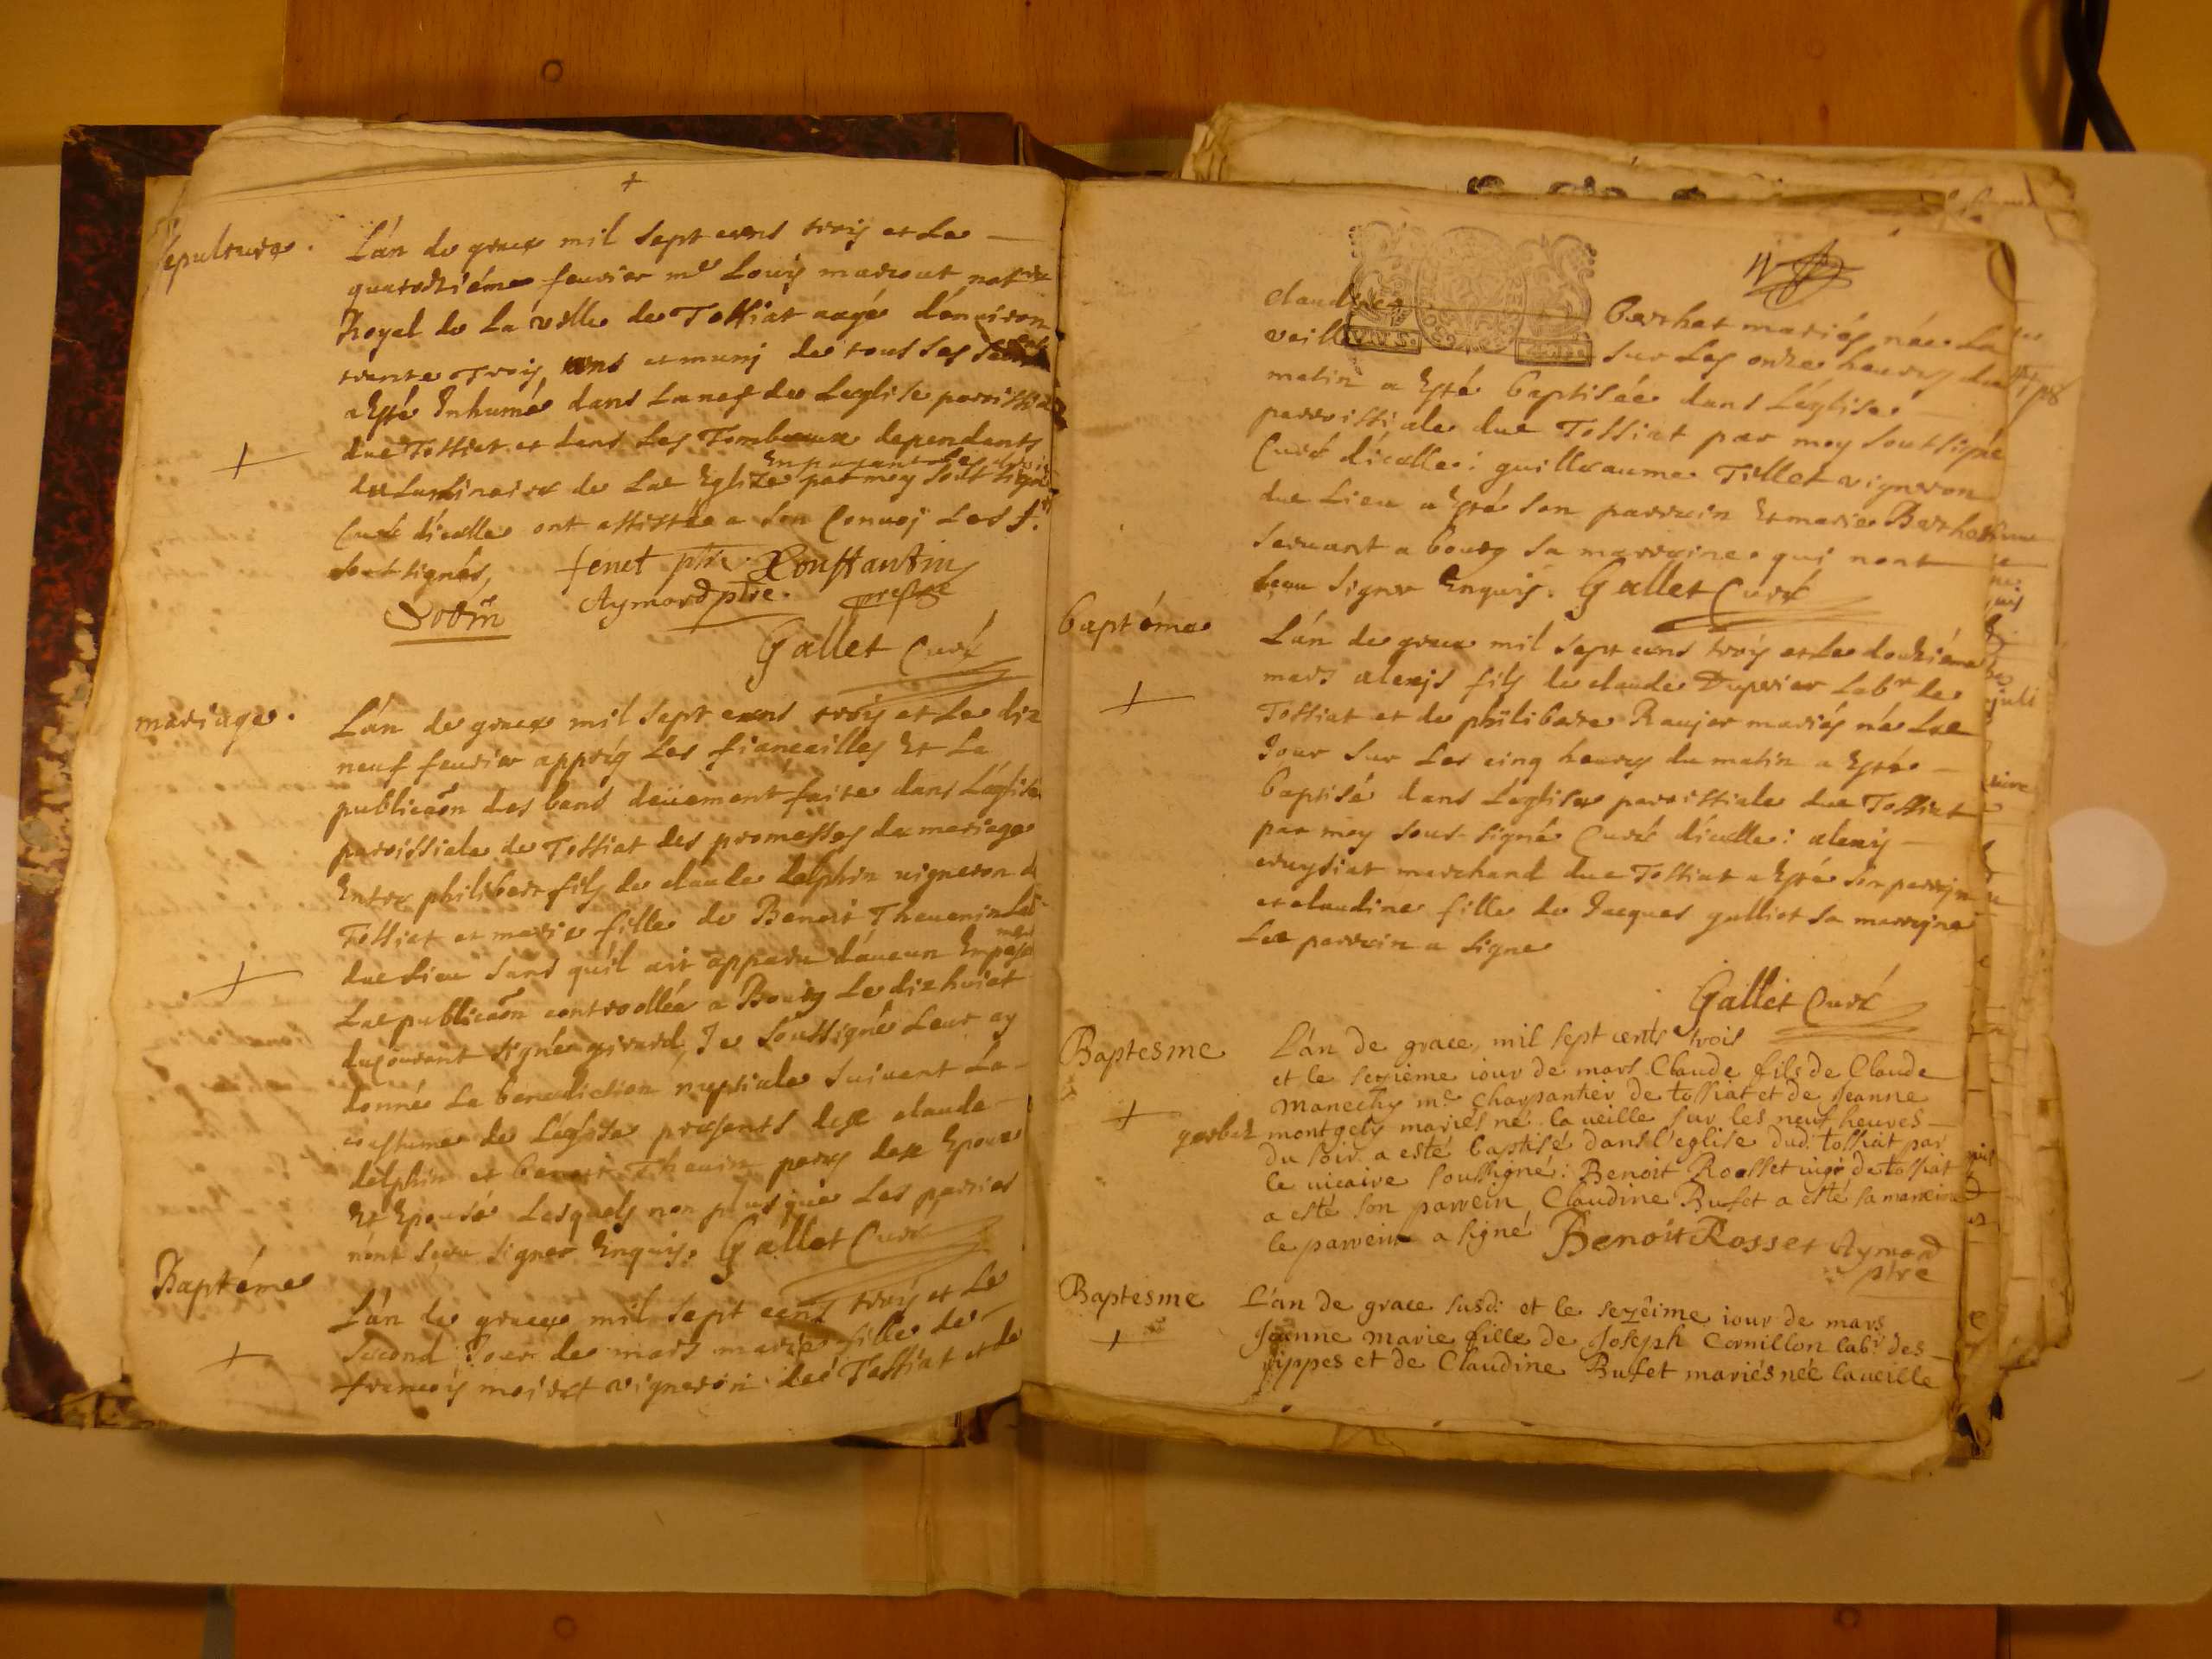 Sepulture.
L'án de grace mil sept cens trois et le
quatorziéme feurier me Louis marcout not
Royal de la ville de Tossiat aagé d'enuiron
trente trois ans et muni de tous les
a Esté Inhumé dans la nef de Leglise parroissi
dud Tossiat et dans les Tombeaux dependants
du Luminaire de lad Eglize par moy soubsigné
Curé d'icelle ont assisté a son Conuoj Les Srs
soubsignés, fenet ptre Constantin
Aymard ptre. prestre
Gallet Curé
mariage.
L'án de grace mil sept cens trois et le diz
neuf feurier apprés les fiancailles Et la
publicaõn des bans deüement faite dans L'églize
paroissiale de Tossiat des promesses de mariage
Entre philibert fils de claude delphin vigneron de
Tossiat et marie fille de Benoit Theuenin Lab
dud Lieu sans qu'il ait apparu d'aucun Enpesche
ment
Lad publicaõn controollée a Bourg Le dizhuict
du courant signé girard, Je soussigné Leur ay
donné La benediction nuptiale suiuant La
coustume de L'églize presents led claude
delphin et benoit Theuin peres desd Epoux
Et Epouse Lesquels non plus que Les parties
n'ont sceu signer Enquis. Gallet Curé
Baptéme
L'án de grace mil sept cens trois et Le
second Jour de mars marie fille de
francois moiret vigneron de Tossiat et de
claudine Berthet mariés, née La
veille sur Les onze heures du
matin a Esté baptisée dans L'églize
parroissiale dud Tossiat par moy soubsigné
Curé d'icelle: guilleaume Tillet vigneron
dud Lieu a Esté son parrain Et marie Berthet
seruant a bourg sa marraine qui nont
sceu signer Enquis. Gallet Curé
baptéme
L'án de grace mil sept cens trois et Le douziéme
mars alexis fils de claude Duprier Labr de
Tossiat et de philiberte Raujer mariés né Led
Jour sur Les cinq heures du matin a Esté
baptisé dans L'églize parroissiale dud Tossiat
par moy sous-signé Curé d'icelle: alexis
cruysiat marchand dud Tossiat a Esté son parrain
et claudine fille de Jacques galliot sa marraine
Led parrain a signe
Gallet Curé
Baptesme
L'án de grace, mil sept cents trois
et le sezieme iour de mars Claude fils de Claude
manechy me charpantier de tossiat et de Jeanne
gerbet montgely mariés né la ueille sur les neuf heures
du soir a esté baptisé dans l'eglise dud tossiat par
le uicaire soussigné: Benoit Rosset uigr de tossiat
a esté son parrein Claudine Bufet a esté sa marreine
le parrein a signé Benoit Rosset Aymard
ptre
Baptesme
L'an de grace susd: et le sezéime iour de mars
Jeanne marie fille de Joseph Cornillon labr des
rippes et de Claudine Bufet mariés née la ueille